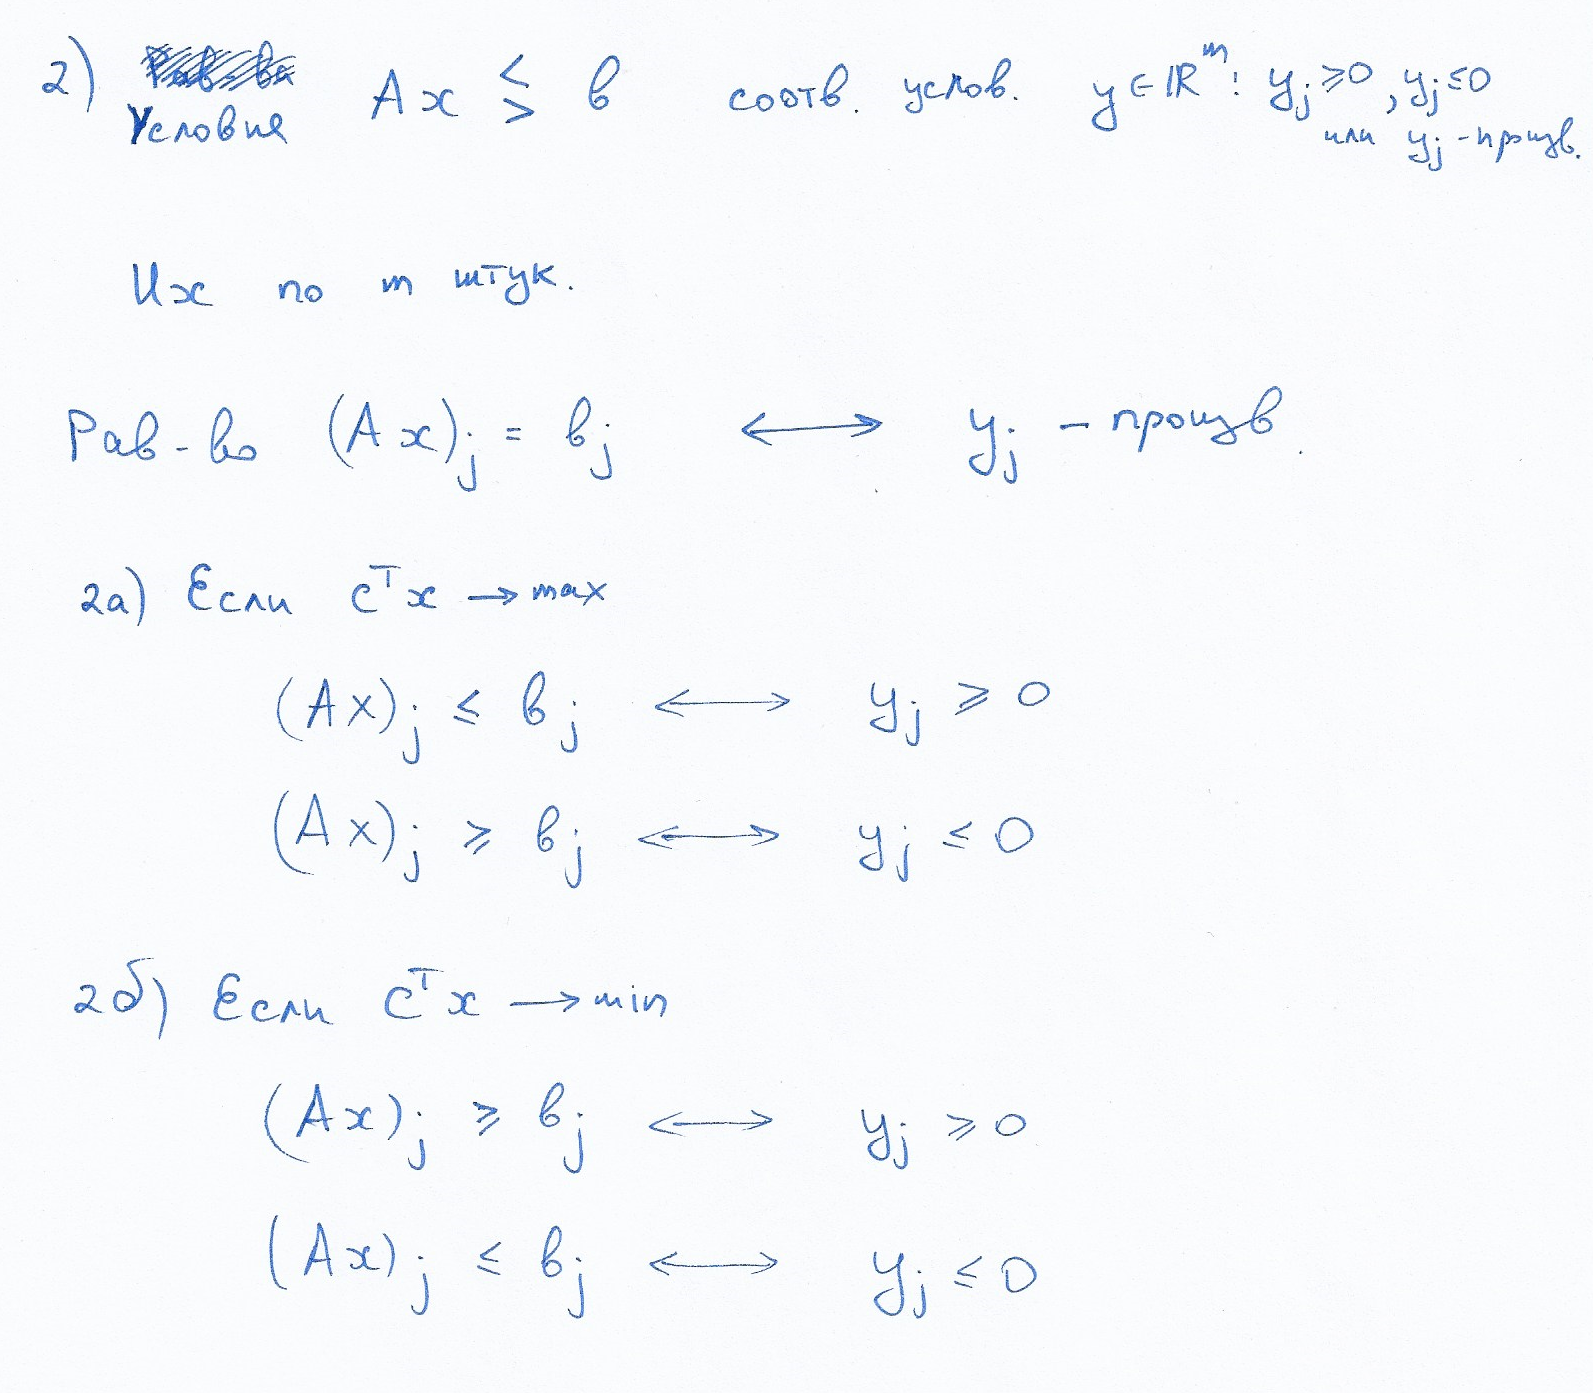 2) Условия Ax ≶ b соотв. услов. y ∈ ℝᵐ: yⱼ ≥ 0, yⱼ ≤ 0
или yⱼ - произв.
Их по m штук.
Рав-во (Ax)ⱼ = bⱼ ⟷ yⱼ - произв.
2а) Если cᵀx → max
(Ax)ⱼ ≤ bⱼ ⟷ yⱼ ≥ 0
(Ax)ⱼ ≥ bⱼ ⟷ yⱼ ≤ 0
2б) Если cᵀx → min
(Ax)ⱼ ≥ bⱼ ⟷ yⱼ ≥ 0
(Ax)ⱼ ≤ bⱼ ⟷ yⱼ ≤ 0